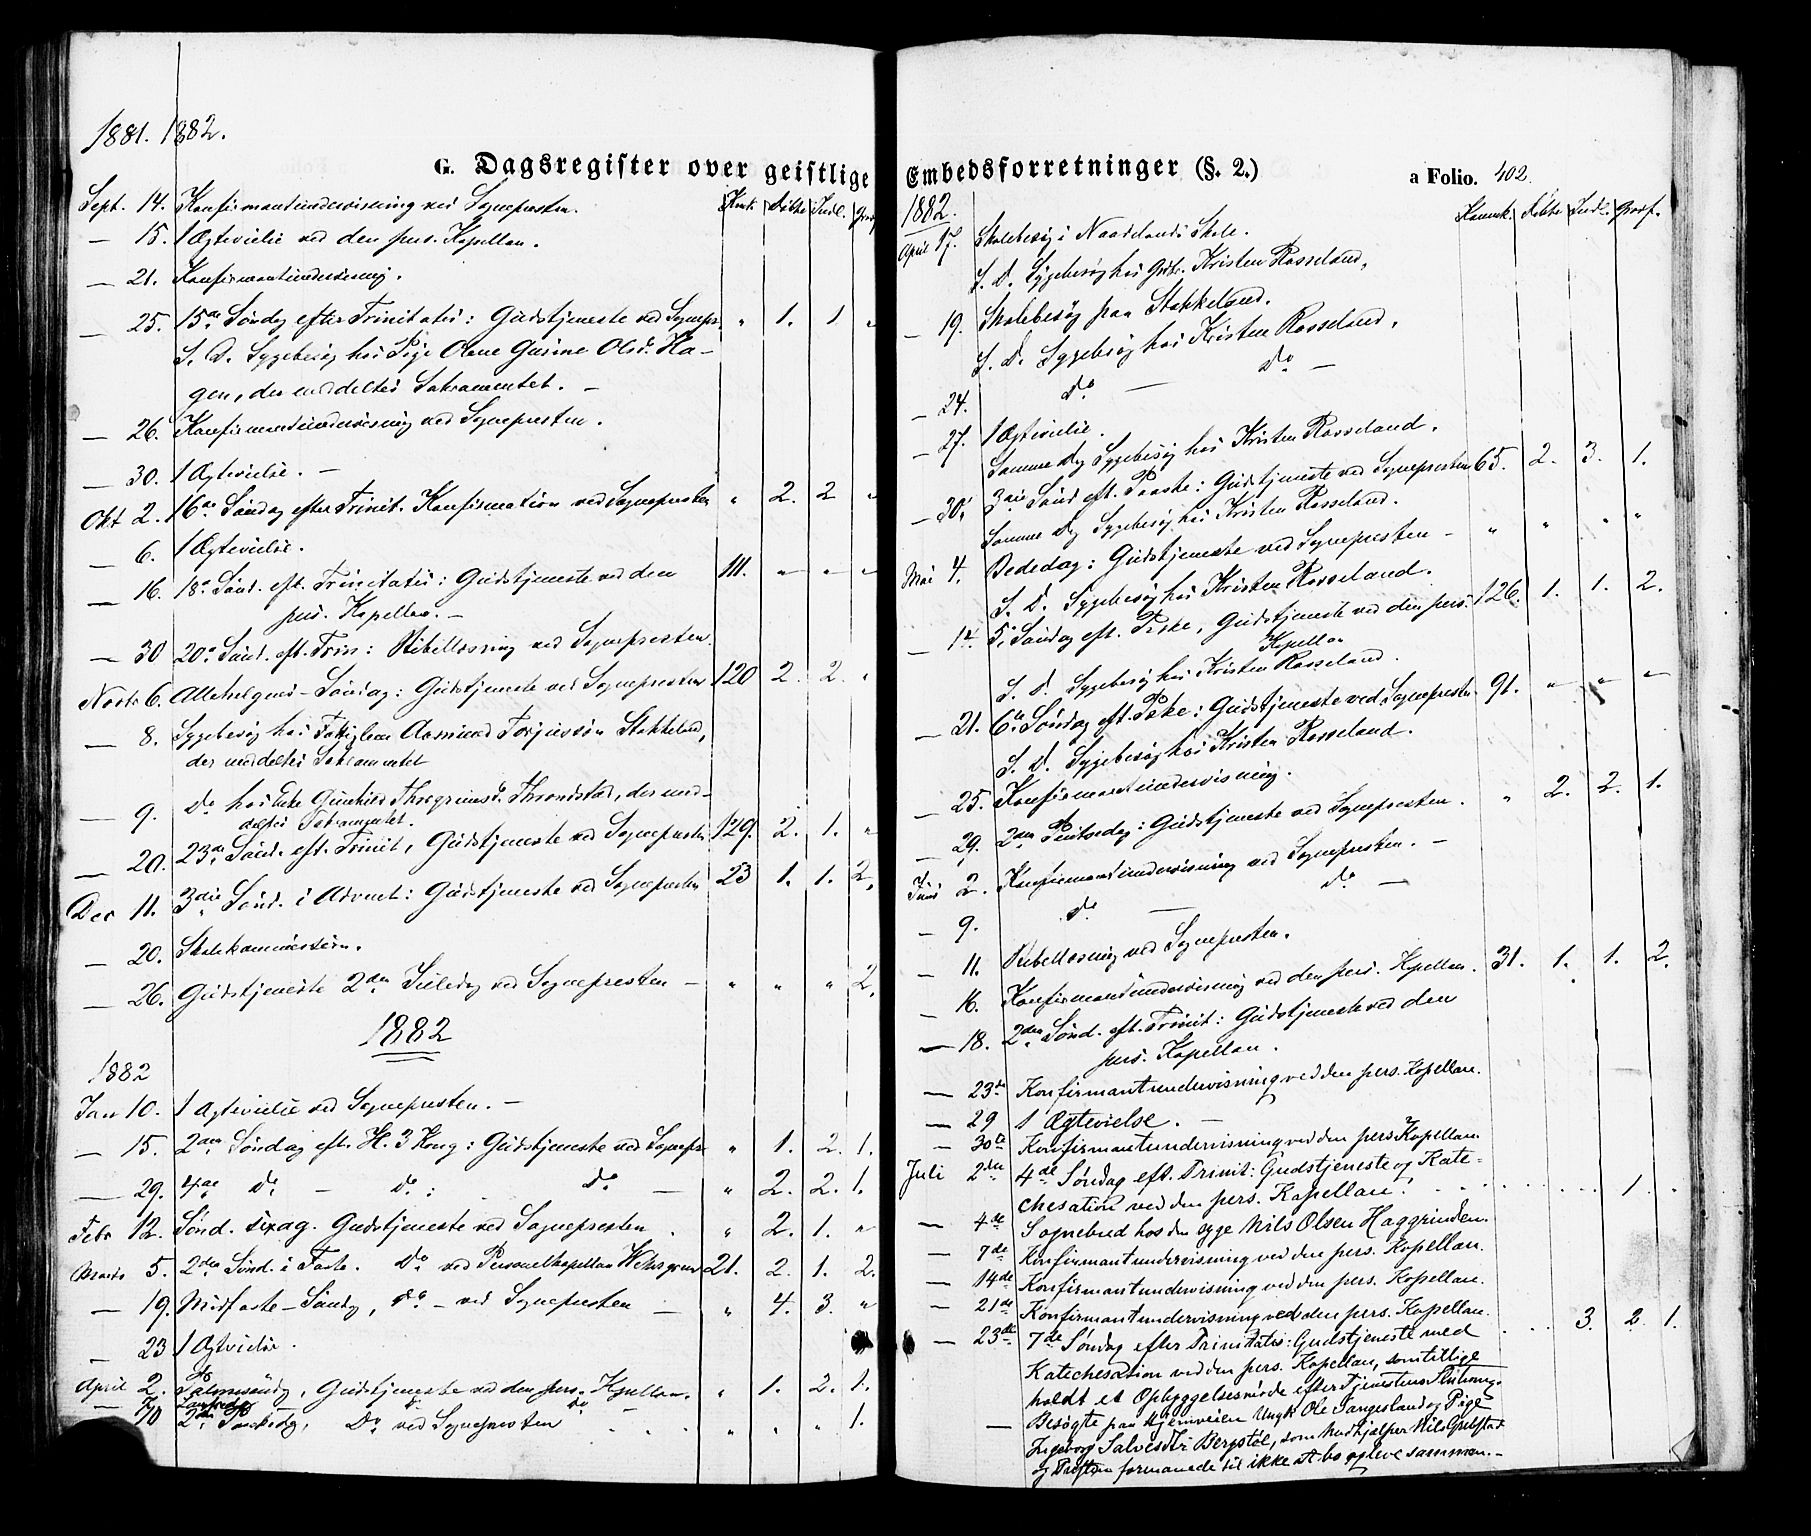 1881. 1882.
G. Dagsregister over geistlige
Komk. Døbte Indl. Grav
Sept. 14. Konfirmantundervisning ved Sognepresten.
— 15. 1 Ægtevielse ved den pers. Kapellan.
— 21. Konfirmantundervisning.
— 25. 15de Søndag efter Trinitatis: Gudstjeneste ved Sognepr. " 1. 1 "
S. D. Sygebesøg hos Pige Olsd. Ha-
gen, der meddeltes Sakramentet. —
— 26. Konfirmantundervisning ved Sognepresten.
— 30. 1 Ægtevielse. —
Okt 2. 16de Søndag efter Trinit. Konfirmation ved Sognepresten " 2. 2 "
— 6. 1 Ægtevielse.
— 16. 18de Sønd. eft. Trinitatis: Gudstjeneste ved den 111. " " "
pers. Kapellan. —
— 30 20de Sønd. eft. Trin: Bibellæsning ved Sognepresten.
Novbr 6. Allehelgens-Søndag: Gudstjeneste ved Sognepresten 120 2. 2. "
— 8. Sygebesøg hos Aasmund Stokkeland,
der meddeltes Sakramentet
— 9. Do hos Enke Gunhild Throndstad, der med-
deltes Sakramentet.
— 20. 23de Sønd. eft. Trinit, Gudstjeneste ved Sognepresten 129. 2. 1. "
Dec 11. 3die Sønd. i Advent: Gudstjeneste ved Sognepresten 23 1. 1. 2.
— 20. Skolekommission.
— 26. Gudstjeneste 2den Juledag ved Sognepresten — " " " 2.
1882
1882
Jan 10. 1 Ægtevielse ved Sognepresten. —
— 15. 2den Søndag eft. H. 3 Kong: Gudstjeneste ved Sognepr " 1. 2. 1.
— 29. 4de Do — Do: Do — " 2. 2. 1.
Febr 12. Sønd. sexag. Gudstjeneste ved Sognepresten. " 2. 1. "
Marts 5. 2den Sønd. i Faste. Do ved Personelkapellan 21. 2. 1. 2.
— 19. Midfaste-Søndag, Do — ved Sognepresten — " 4. 3. "
— 23 1 Ægtevielse.
April 2. Palmesøndag, Gudstjeneste ved den pers. Kapellan. " 1. 2. 1.
— 10 2den Paaskedag, Do ved Sognepresten " " " 1.
Embedsforretninger (§. 2.)
a Folio. 402.
1882.
Komuk. Døbte Indl. Gravf.
April 17. Skolebesøg i Naadelands Skole.
S. D. Sygebesøg hos Gbr. Kristen Rosseland.
— 19. Skolebesøg paa Stokkeland.
S. D. Sygebesøg hos Kristen Rosseland.
— 24. Do — Do —
— 27. 1 Ægtevielse.
Samme Dag Sygebesøg hos Kristen Rosseland.
— 30. 3die Sønd eft. Paaske: Gudstjeneste ved Sognepresten 65. 2. 3. 1.
Samme Dag Sygebesøg hos Kristen Rosseland.
Mai 4. Bededag: Gudstjeneste ved Sognepresten — " " " "
S. D. Sygebesøg hos Kristen Rosseland.
— 14. 5te Søndag eft. Paaske, Gudstjeneste ved den pers. 126. 1. 1. 2.
Kapellan
S. D. Sygebesøg hos Kristen Rosseland.
— 21. 6te Søndag eft. Paaske: Gudstjeneste ved Sognepresten 91. " " "
S. D. Sygebesøg hos Kristen Rosseland.
— 25. Konfirmantundervisning.
— 29. 2den Pintsedag: Gudstjeneste ved Sognepresten. " 2. 2. 1.
Juni 2. Konfirmantundervisning ved Sognepresten. —
— 9. Do — Do —
— 11. Bibellæsning ved Sognepresten.
— 16. Konfirmantundervisning ved den pers. Kapellan. 31. 1. 1. 2.
— 18. 2den Sønd. eft. Trinit: Gudstjeneste ved den
pers. Kapellan.
— 23de Konfirmantundervisning ved den pers. Kapellan.
— 29 1 Ægtevielse. —
— 30te Konfirmantundervisning ved den pers Kapellan.
Juli 2den 4de Søndag eft. Trinit: Gudstjeneste og Kate-
chesation ved den pers. Kapellan. 1.
— 4de Sognebud hos den syge Nils Olsen Haggrinden.
— 7de Konfirmantundervisning ved den pers. Kapellan.
— 14de Konfirmantundervisning ved den pers. Kapellan.
— 21de Konfirmantundervisning ved den pers. Kapellan.
— 23de 7de Søndag efter Trinitatis: Gudstjeneste med 3. 2. 1.
Katechesation ved den pers. Kapellan, som tillige
holdt et Opbyggelsesmøde efter Tjenestens Slutning.
— Besøgte paa Hjemveien Ungk Ole Tangesland og Pige
Ingeborg Salvesdtr Bergstøl, som Medhjælper Nils
og formanede til ikke at bo og leve sammen. —